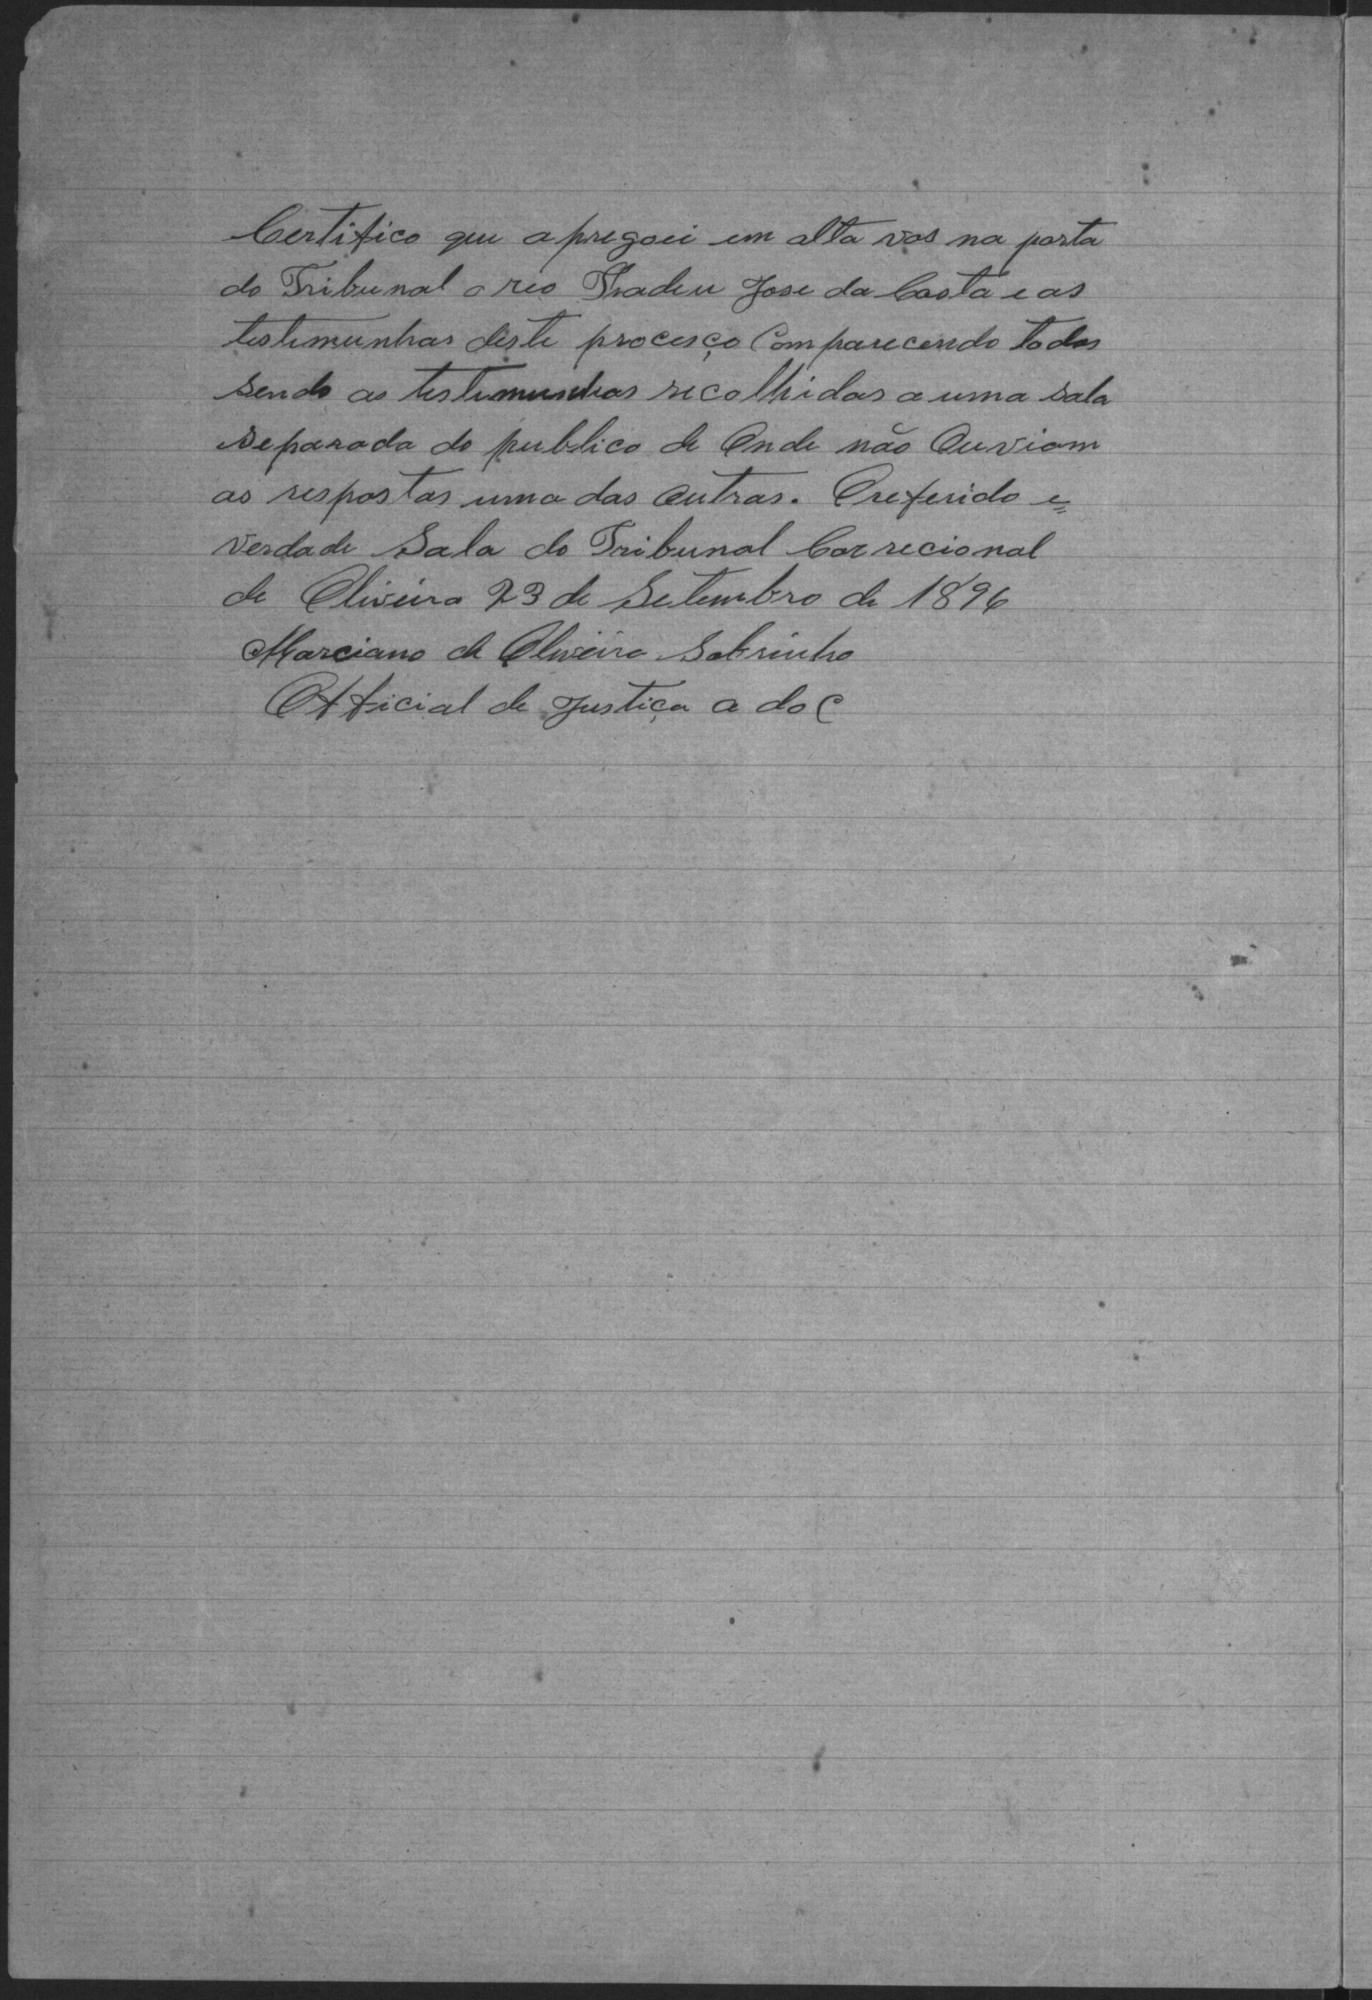 Certifico que apregoei em alta vos na porta
do Tribunal o reo Thadeu Jose da Costa e as
testimunhas deste procesço Comparecendo todos
sendo as testimunhas recolhidas a uma sala
separada do publico de Onde não Ouviam
as respostas uma das Outras. O referido e
verdade Sala do Tribunal Correcional
de Oliveira 23 de Setembro de 1896
Marciano de Oliveira Sobrinho
Official de Justiça a doc